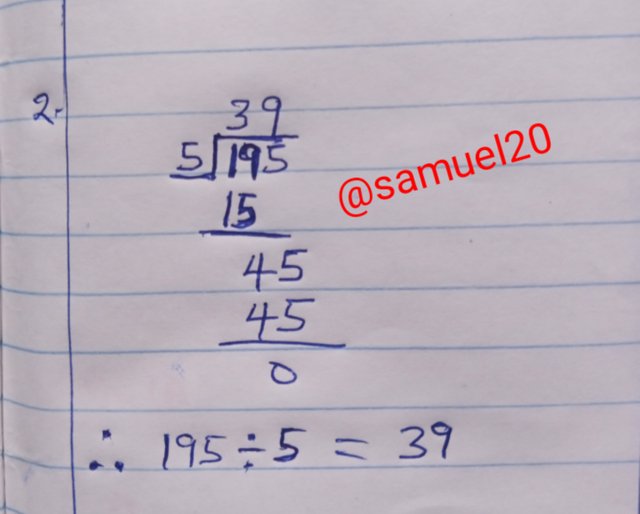 2.
39
5 195
15
45
45
0
∴ 195 ÷ 5 = 39
@samuel20